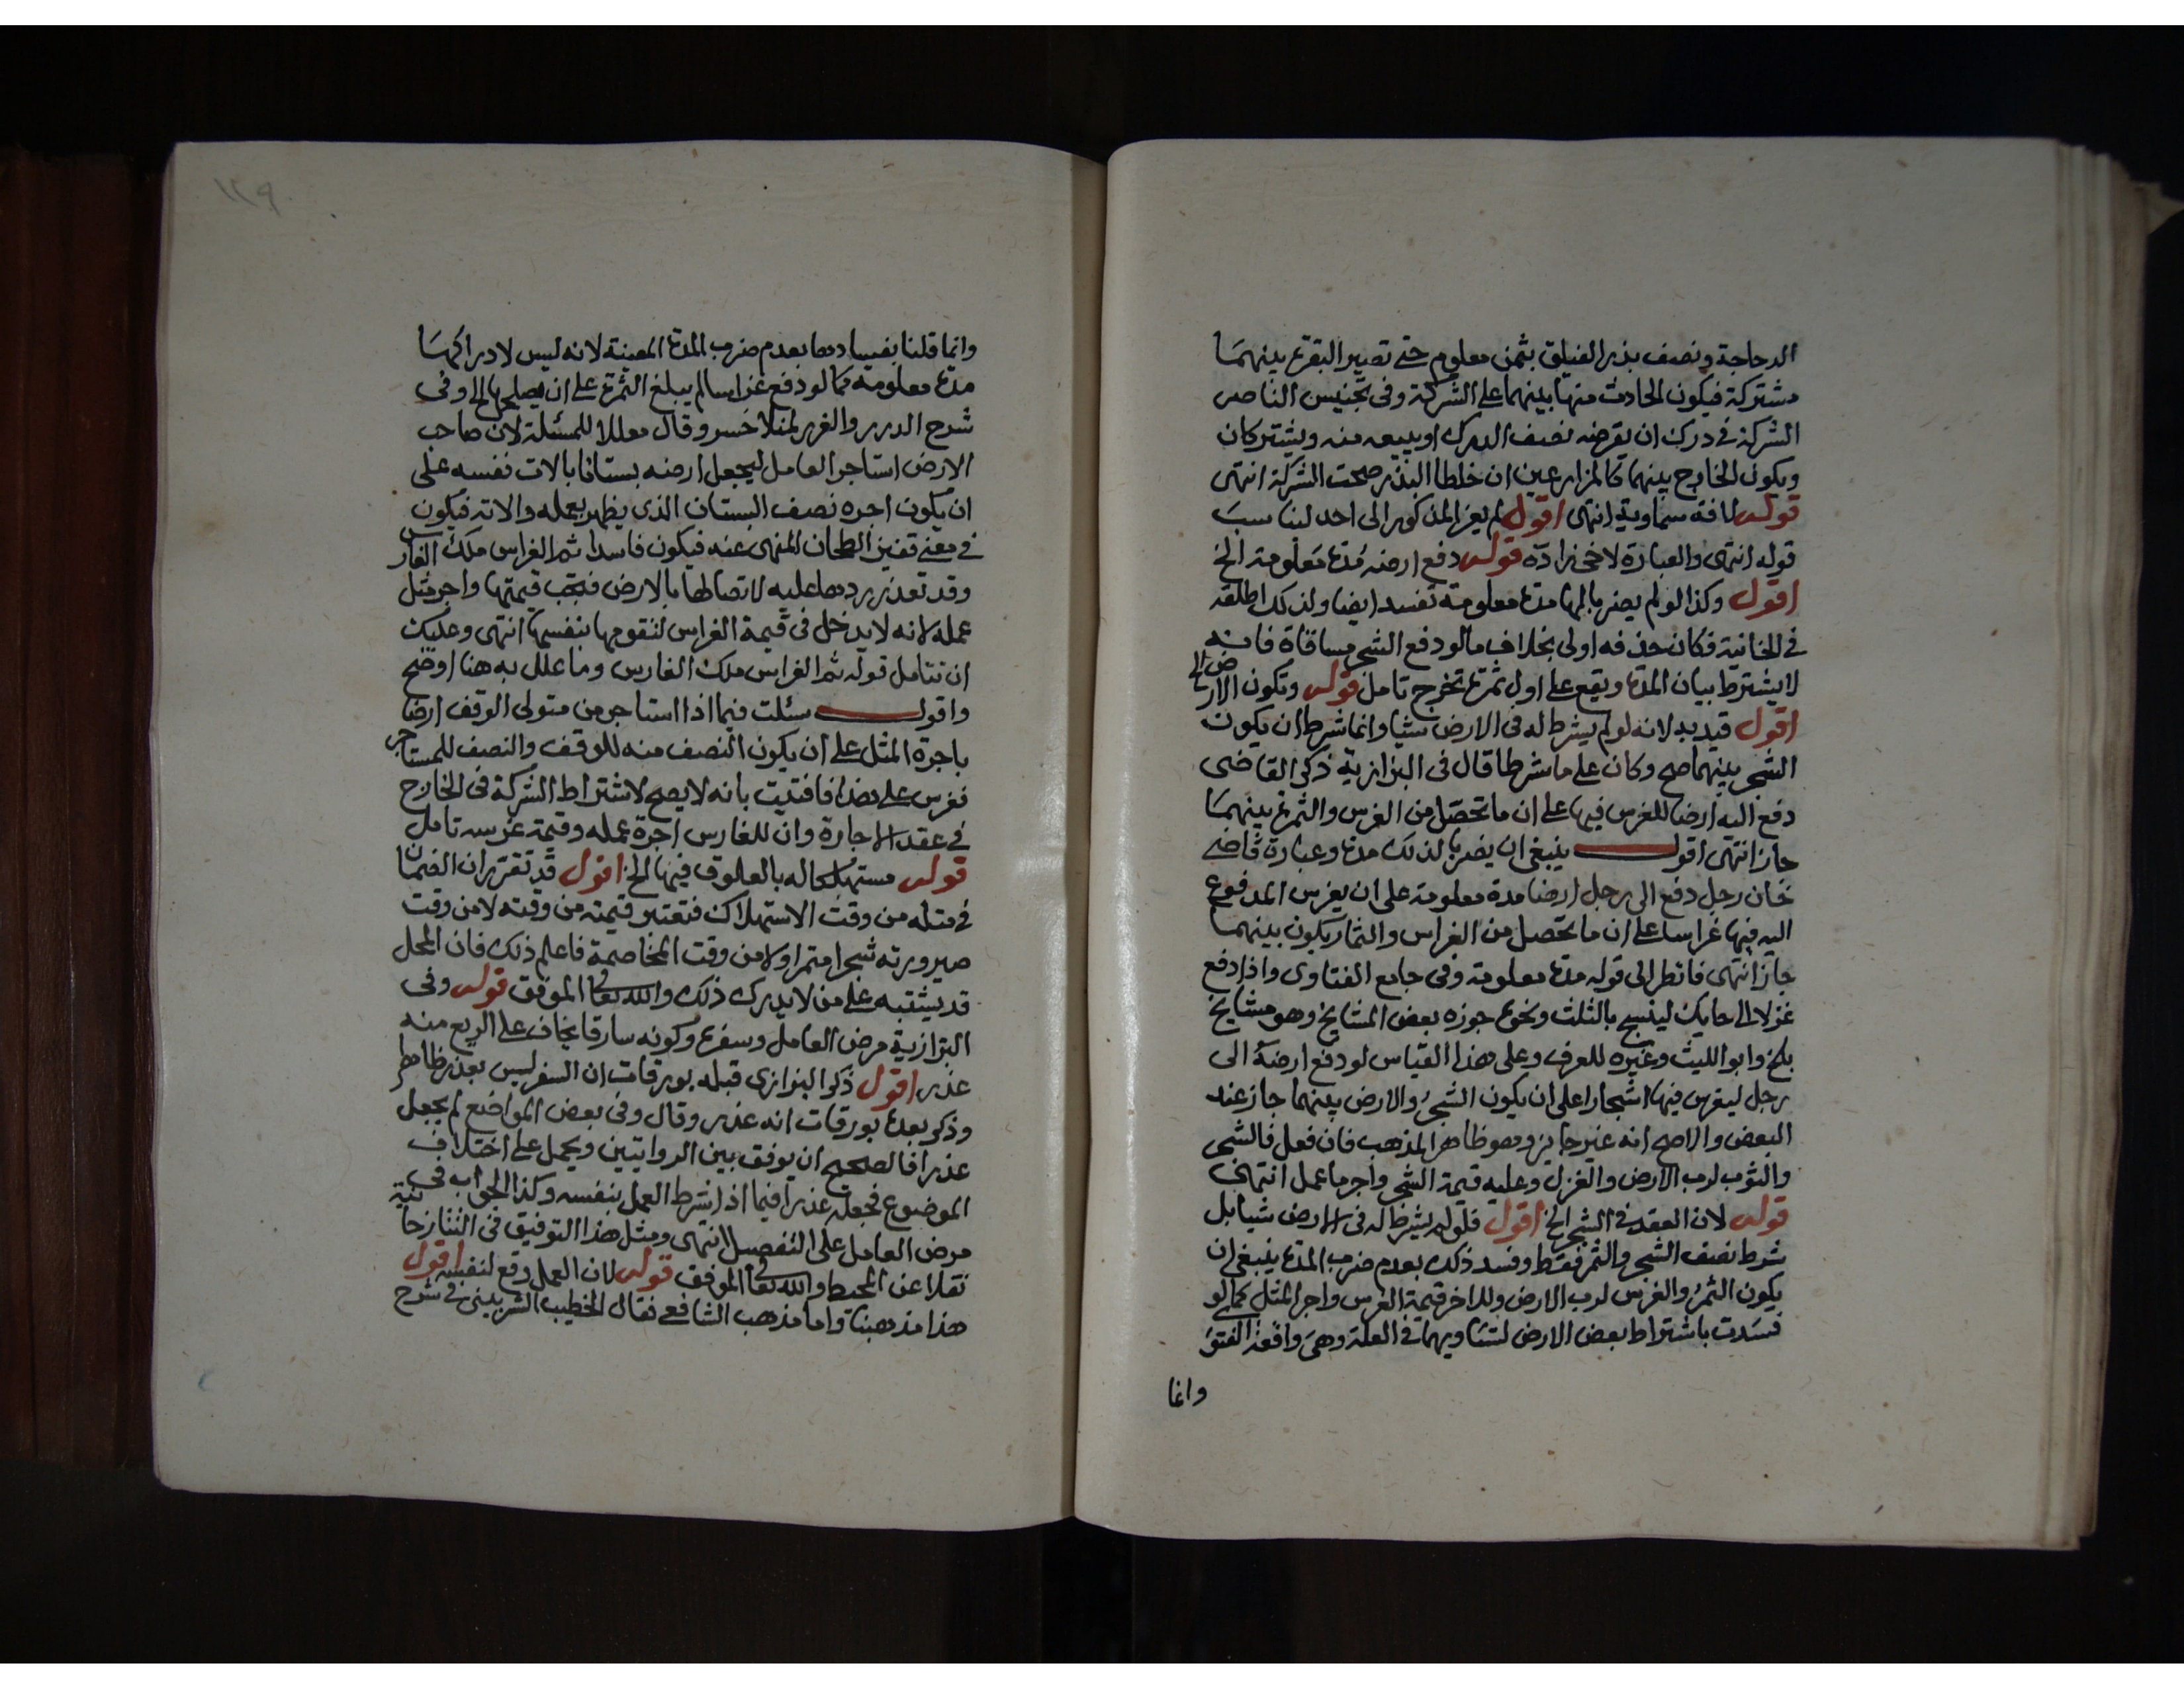 الدجاجة ونصف بذر الفيلق بثمن معلوم حتى تصير البقرة بينهما
مشتركة فيكون الحادث منها بينهما على الشركة وفي تجنيس الناصر
الشركة في درك ان يقرضه نصف الدرك او يبيعه منه ويشتركان
ويكون الخارج بينهما كالمزارعين ان خلطا البذر صحت الشركة انتهى
قوله لافة سماوية انتهى اقول لم يعز المذكور الى احد ليناسب
قوله انتهى والعبارة لاخى زاده قوله دفع ارضه مدة معلومة الخ
اقول وكذا لو لم يضربا لها مدة معلومة تفسد ايضا ولذلك اطلقه
في الخانية فكان حذفه اولى بخلاف ما لو دفع الشجر مساقاة فانه
لا يشترط بيان المدة ويقع على اول ثمرة تخرج تامل قوله وتكون الارض الخ
اقول قيد به لانه لو لم يشرط له في الارض شيا وانما شرط ان يكون
الشجر بينهما صح وكان على ما شرطا قال في البزازية ذكر القاضى
دفع اليه ارضا للغرس فيها على ان ما تحصل من الغرس والثمرة بينهما
جاز انتهى اقول ينبغي ان يضربا لذلك مدة وعبارة قاضي
خان رجل دفع الى رجل ارضا مدة معلومة على ان يغرس المدفوع
اليه فيها غراسا على ان ما تحصل من الغراس والثمار يكون بينهما
جاز انتهى فانظر الى قوله مدة معلومة وفي جامع الفتاوى واذا دفع
غزلا الى حايك لينسج بالثلث ونحوه جوزه بعض المشايخ وهو مشايخ
بلخ وابو الليث وغيره للعرف وعلى هذا القياس لو دفع ارضه الى
رجل ليغرس فيها اشجارا على ان يكون الشجر والارض بينهما جاز عند
البعض والاصح انه غير جايز وهو ظاهر المذهب فان فعل فالشجر
والثوب لرب الارض والغزل وعليه قيمة الشجر واجر ما عمل انتهى
قوله لان العقد في الشجر الخ اقول فلو لم يشرط له في الارض شيا بل
شرط نصف الشجر والثمر فقط وفسد ذلك بعدم ضرب المدة ينبغي ان
يكون الثمر والغرس لرب الارض وللاخر قيمة الغرس واجر المثل كما لو
فسدت باشتراط بعض الارض لتساويهما في العلة وهي واقعة الفتوى
وانما
١٢٩
وانما قلنا بفسادها بعدم ضرب المدة المعينة لانه ليس لادراكها
مدة معلومة كما لو دفع غراسا لم يبلغ الثمرة على ان يصلحها الخ وفي
شرح الدرر والغرر لمنلا خسرو قال معللا للمسئلة لان صاحب
الارض استاجر العامل ليجعل ارضه بستانا بالات نفسه على
ان يكون اجره نصف البستان الذي يظهر بعمله والاته فيكون
في معنى قفيز الطحان المنهى عنه فيكون فاسدا ثم الغراس ملك الغارس
وقد تعذر ردها عليه لاتصالها بالارض فتجب قيمتها واجر مثل
عمله لانه لا يدخل في قيمة الغراس لتقومها بنفسها انتهى وعليك
ان تتامل قوله ثم الغراس ملك الغارس وما علل به هنا اوضح
واقول سئلت فيما اذا استاجر من متولى الوقف ارضا
باجرة المثل على ان يكون النصف منه للوقف والنصف للمستاجر
فغرس على هذا فافتيت بانه لا يصح لاشتراط الشركة في الخارج
في عقد الاجارة وان للغارس اجرة عمله وقيمة غرسه تامل
قوله مستهلكا له بالعلوق فيها الخ اقول قد تقرر ان الضمان
في مثله من وقت الاستهلاك فتعتبر قيمته من وقته لا من وقت
صيرورته شجرا مثمرا ولا من وقت المخاصمة فاعلم ذلك فان المحل
قد يشتبه على من لا يدرك ذلك والله تعالى الموفق قوله وفي
البزازية مرض العامل وسفره وكونه سارقا يخاف على الريع منه
عذر اقول ذكر البزازي قبله بورقات ان السفر ليس بعذر ظاهر
وذكر بعده بورقات انه عذر وقال وفي بعض المواضع لم يجعل
عذرا فالصحيح ان يوفق بين الروايتين ويحمل على اختلاف
الموضوع فجعله عذرا فيما اذا شرط العمل بنفسه وكذا الجواب في
مرض العامل على التفصيل انتهى ومثل هذا التوفيق في التتارخانية
نقلا عن المحيط والله تعالى الموفق قوله لان العمل وقع لنفسه اقول
هذا مذهبنا واما مذهب الشافعي فقال الخطيب الشربيني في شرح